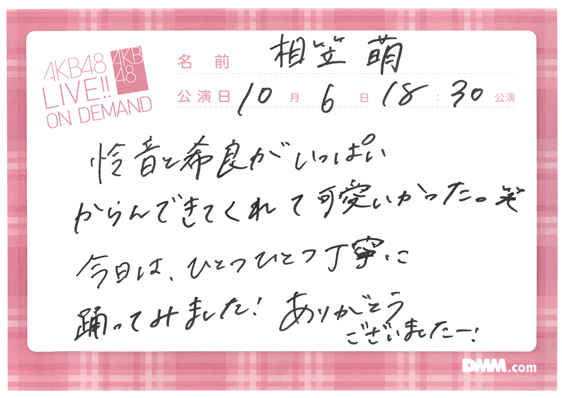 AKB48
LIVE!!
ON DEMAND
AKB
48
名前 相笠 萌
公演日 10月 6日 18:30公演
怜音と希良がいっぱい
からんできてくれて可愛いかった。笑
今日は、ひとつひとつ丁寧に
踊ってみました! ありがとう
ございましたー!
DMM.com